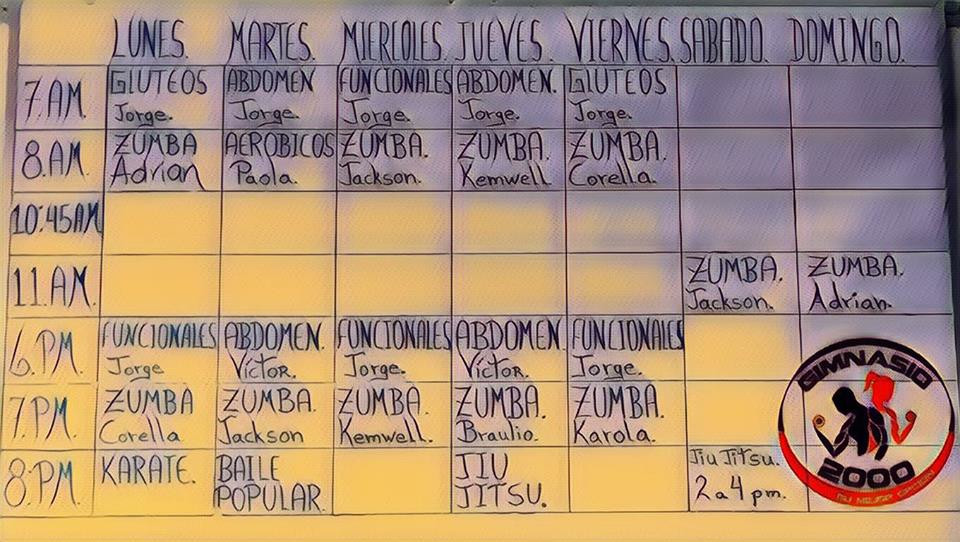 LUNES. MARTES. MIERCOLES. JUEVES. VIERNES. SABADO. DOMINGO.
7.AM GLUTEOS ABDOMEN FUNCIONALES ABDOMEN. GLUTEOS
Jorge. Jorge. Jorge. Jorge. Jorge.
8.AM. ZUMBA AEROBICOS ZUMBA. ZUMBA. ZUMBA.
Adrian Paola. Jackson. Kemwell Corella.
10:45AM
11.AM. ZUMBA. ZUMBA.
Jackson. Adrian.
6.PM. FUNCIONALES ABDOMEN. FUNCIONALES ABDOMEN. FUNCIONALES
Jorge Víctor. Jorge. Víctor. Jorge.
7.PM ZUMBA ZUMBA. ZUMBA. ZUMBA. ZUMBA.
Corella Jackson Kemwell. Braulio. Karola.
8:PM. KARATE. BAILE JIU Jiu Jitsu.
POPULAR. JITSU. 2 a 4 pm.
GIMNASIO
2000
TU MEJOR OPCION